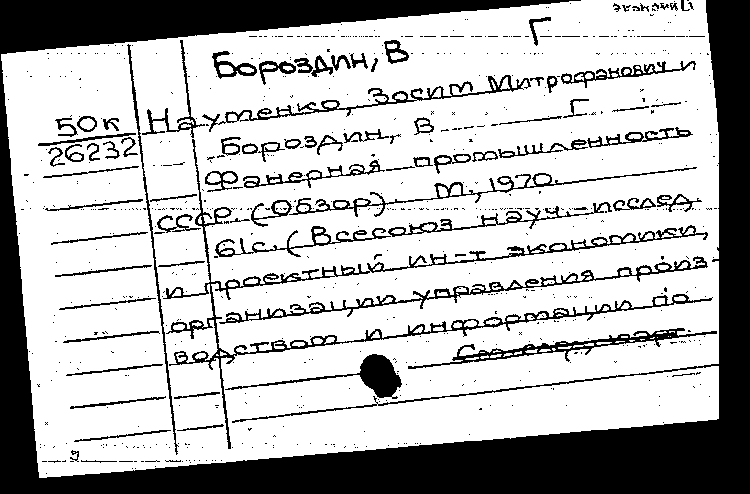 экономи
Бороздин, В Г
50к Науменко, Зосим Митрофанович и
26232 Бороздин, В Г
Фанерная промышленность
СССР. (Обзор). М., 1970.
61с. (Всесоюз науч.-исслед.
и проектный ин-т экономики,
организации управления произ-
водством и информации по
См. след. карт.